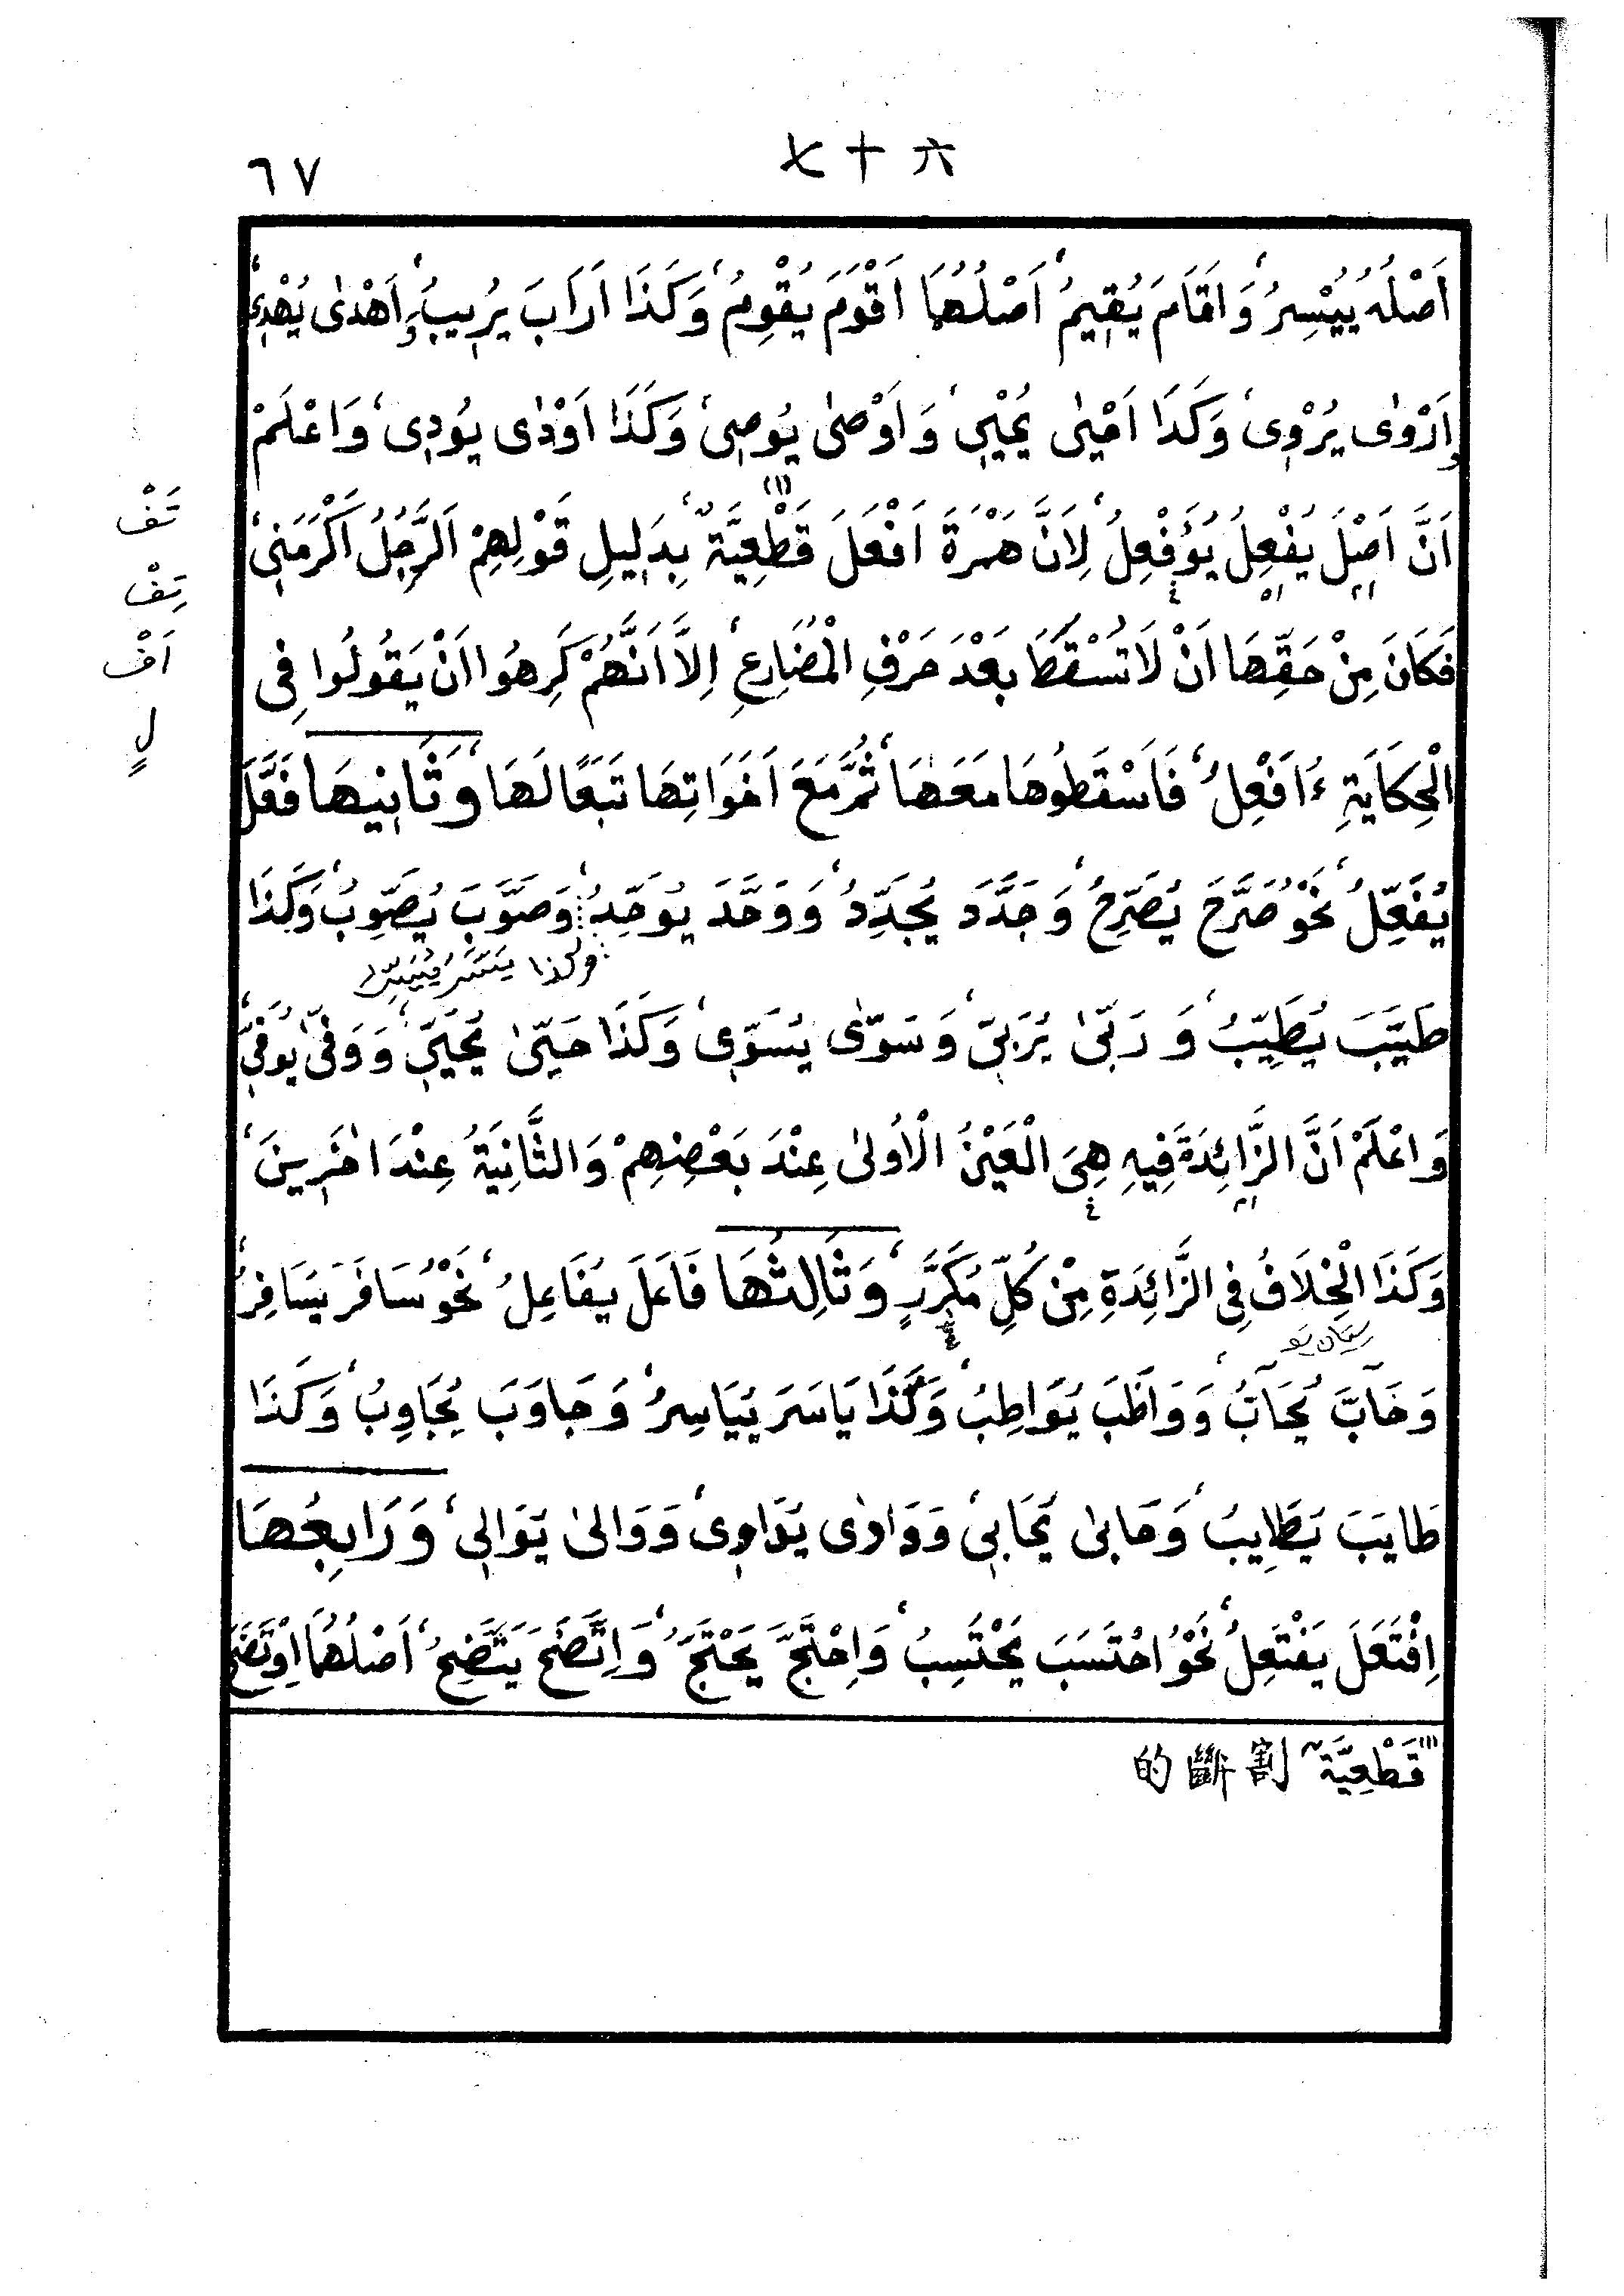 ٦٧
六十七
اَصْلُهُ يُيْسِرُ، وَاَقَامَ يُقِيمُ، اَصْلُهُمَا اَقْوَمَ يُقْوِمُ، وَكَذَا اَرَابَ يُرِيبُ، وَاَهْدٰى يُهْدِى،
وَاَرْوٰى يُرْوِى، وَكَذَا اَحْيٰى يُحْيِى، وَاَوْصٰى يُوصِى، وَكَذَا اَوْدٰى يُودِى، وَاعْلَمْ
اَنَّ اَصْلَ يُفْعِلُ يُؤَفْعِلُ، لِاَنَّ هَمْزَةَ اَفْعَلَ قَطْعِيَّةٌ (١)، بِدَلِيلِ قَوْلِهِمْ اَلرَّجُلُ اَكْرَمَنِى،
فَكَانَ مِنْ حَقِّهَا اَنْ لَا تُسْقَطَ بَعْدَ حَرْفِ الْمُضَارِعِ، اِلَّا اَنَّهُمْ كَرِهُوا اَنْ يَقُولُوا فِى
الْحِكَايَةِ ءُاَفْعِلُ، فَاَسْقَطُوهَا مَعَهَا، ثُمَّ مَعَ اَخَوَاتِهَا تَبَعًا لَهَا، وَثَانِيهَا فَعَّلَ
يُفَعِّلُ، نَحْوُ صَرَّحَ يُصَرِّحُ، وَجَدَّدَ يُجَدِّدُ، وَوَحَّدَ يُوَحِّدُ، وَصَوَّبَ يُصَوِّبُ، وَكَذَا
وكذا يَسَّرَ يُيَسِّرُ
طَيَّبَ يُطَيِّبُ، وَرَبّٰى يُرَبِّى، وَسَوّٰى يُسَوِّى، وَكَذَا حَيّٰى يُحَيِّى، وَوَفّٰى يُوَفِّى،
وَاعْلَمْ اَنَّ الزَّائِدَةَ فِيهِ هِىَ الْعَيْنُ الْاُولٰى عِنْدَ بَعْضِهِمْ وَالثَّانِيَةُ عِنْدَ اٰخَرِينَ،
وَكَذَا الْخِلَافُ فِى الزَّائِدَةِ مِنْ كُلِّ مُكَرَّرٍ، وَثَالِثُهَا فَاعَلَ يُفَاعِلُ، نَحْوُ سَافَرَ يُسَافِرُ،
وَحَآبَّ يُحَآبُّ، وَوَاظَبَ يُوَاظِبُ، وَكَذَا يَاسَرَ يُيَاسِرُ، وَجَاوَبَ يُجَاوِبُ، وَكَذَا
طَايَبَ يُطَايِبُ، وَحَابٰى يُحَابِى، وَدَاوٰى يُدَاوِى، وَوَالٰى يُوَالِى، وَرَابِعُهَا
اِفْتَعَلَ يَفْتَعِلُ، نَحْوُ احْتَسَبَ يَحْتَسِبُ، وَاِحْتَجَّ يَحْتَجُّ، وَاِتَّضَحَ يَتَّضِحُ، اَصْلُهُمَا اِوْتَضَحَ
(١) قَطْعِيَّةٌ 割斷的
تَفْ
تِفْ
اَفْ
لٍ